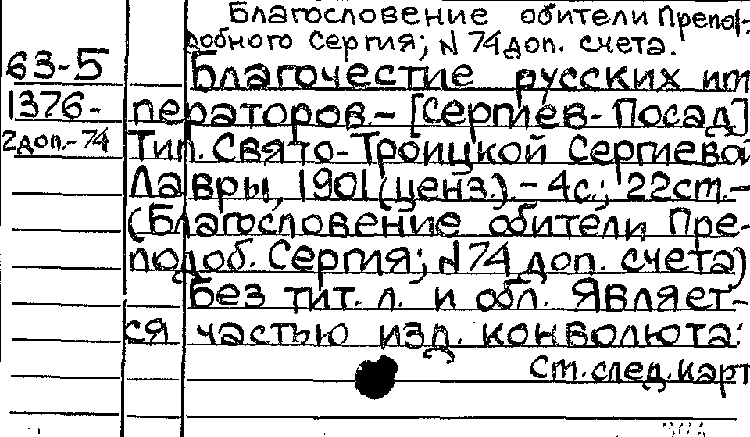 Благословение обители Препо-
добного Сергия; N 74 доп. счета.
63-5 Благочестие русских им
1376- ператоров.- [Сергиев-Посад]
2 доп.-74 Тип. Свято-Троицкой Сергиевой
Лавры, 1901 (ценз.).- 4с.; 22см.-
(Благословение обители Пре-
подоб. Сергия; N 74 доп. счета)
Без тит. л. и обл. Являет-
ся частью изд. конволюта:
см. след. карт